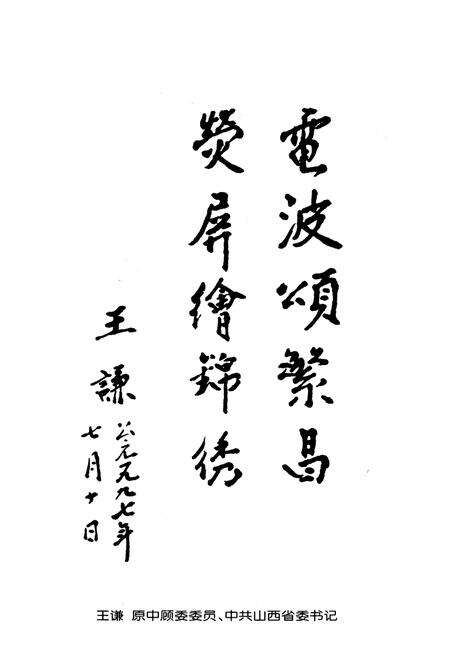 電波頌繁昌
熒屏繪錦綉
王謙
公元一九九七年
七月十日
王谦 原中顾委委员、中共山西省委书记